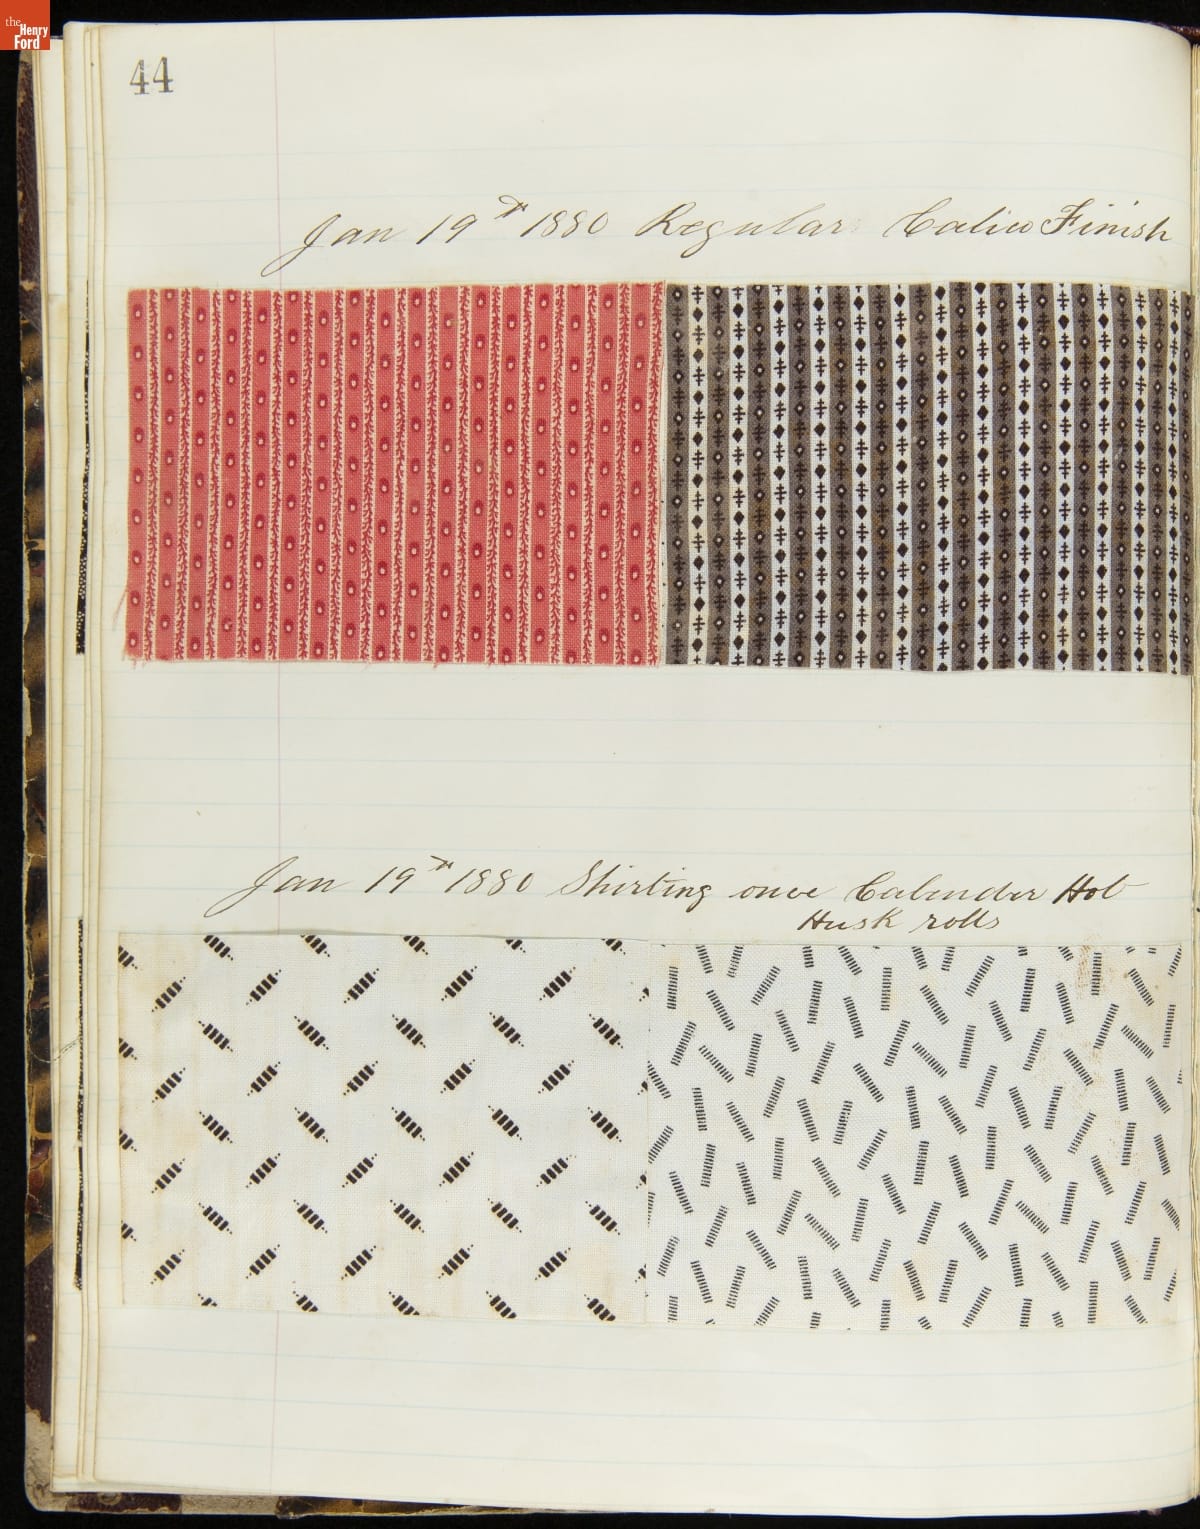 the
Henry
Ford
44
Jan 19th 1880 Regular Calico Finish
Jan 19th 1880 Shirting once Calender Hot
Husk rolls